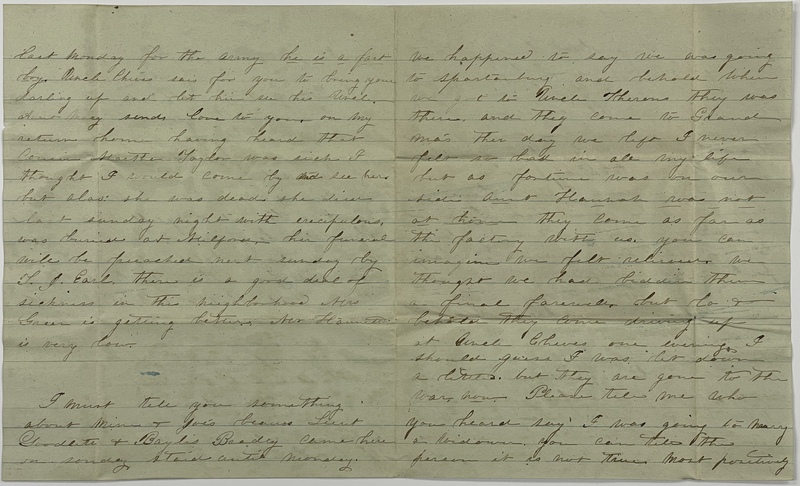 last Monday for the army he is a fast
boy. Uncle Chives sais for you to bring your
darling up and let him see his Uncle.
Aunt Mary sends love to you, on my
return home having heard that
Cousin Martha Taylor was sick I
thought I would come by and see her
but alas she was dead she died
last sunday night with erecipelous,
was buried at Milford, her funeral
will be preached next sunday by
T J Earl, there is a good deal of
sickness in this neighborhood Mrs
Green is getting better, Mr
is very low.
I must tell you something
about Mine & Joes beaus Lieut
& Baylis came here
on sunday, staid until Monday.
we happened to say we was going
to spartanburg and behold when
we got to Uncle Therons they was
there. and they come to Grand
mas the day we left I never
felt so bad in all my life
but as fortune was on our
side Aunt Hannah was not
at home they come as far as
the factory with us. you can
imagine we felt relieved we
thought we had bidden them
a final farewell, but lo &
behold they come driving up
at Uncle Chives one evening I
should guess I was let down
a little. but they are gone to the
war now. Please tell me who
you heard say I was going to marry
a widower. you can tell the
person it is not true most positively